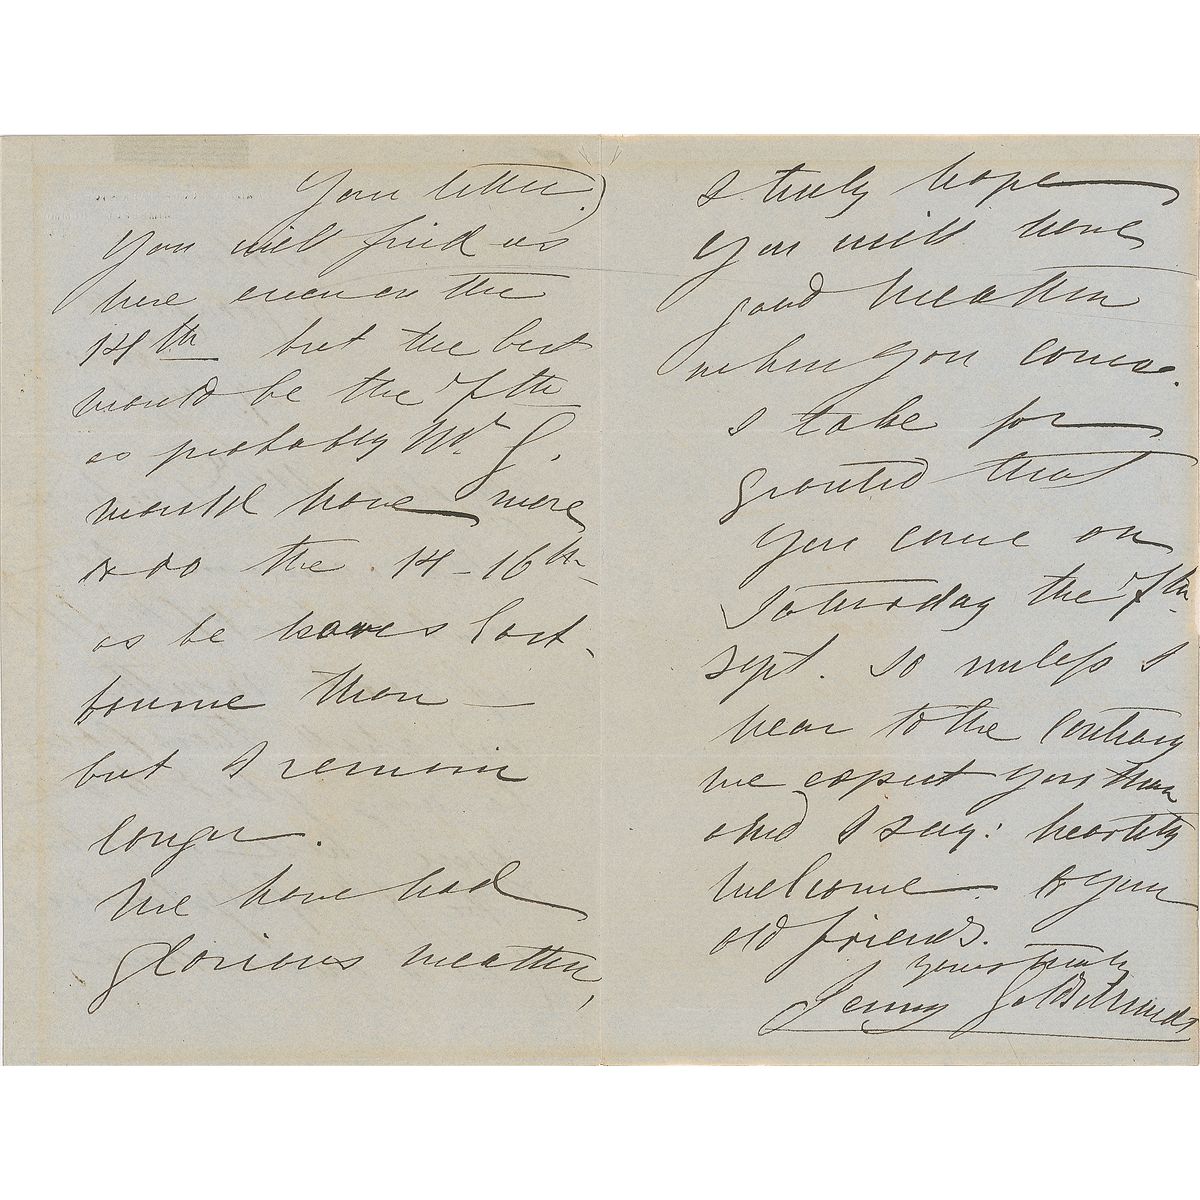 your letter.)
You will find us
here even on the
14th but the best
would be the 7th
as probably Mr. G.
would have more
to do the 14-16th
as he leaves East-
bourne then —
but I remain
longer.
We have had
glorious weather,
I truly hope
you will have
good weather
when you come.
I take for
granted that
you come on
Saturday the 7th
Sept. So unless I
hear to the contrary
we expect you then
and I say: heartily
welcome to your
old friends.
yours truly
Jenny Goldschmidt